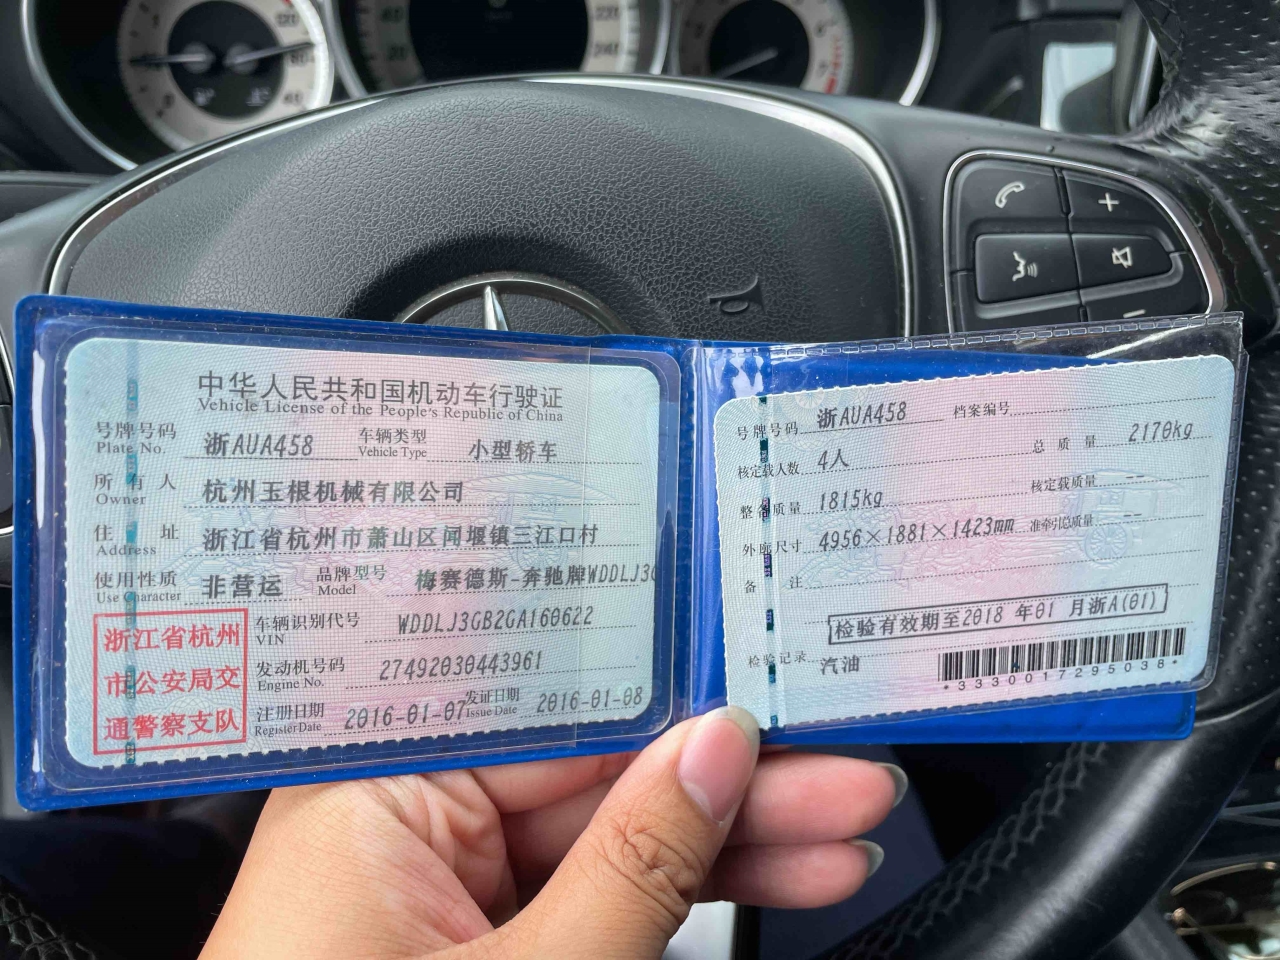 中华人民共和国机动车行驶证
Vehicle License of the People's Republic of China
号牌号码 浙AUA458 车辆类型 小型轿车
Plate No. Vehicle Type
所有人 杭州玉根机械有限公司
Owner
住址 浙江省杭州市萧山区闻堰镇三江口村
Address
使用性质 非营运 品牌型号 梅赛德斯-奔驰牌WDDLJ3G
Use Character Model
浙江省杭州
市公安局交
通警察支队
车辆识别代号 WDDLJ3GB2GA160622
VIN
发动机号码 27492030443961
Engine No.
注册日期 2016-01-07 发证日期 2016-01-08
Register Date Issue Date
号牌号码 浙AUA458 档案编号
核定载人数 4人 总质量 2170kg
整备质量 1815kg 核定载质量 --
外廓尺寸 4956×1881×1423mm 准牵引总质量 --
备注
检验有效期至2018年01月浙A(01)
检验记录 汽油
*3330017295038*